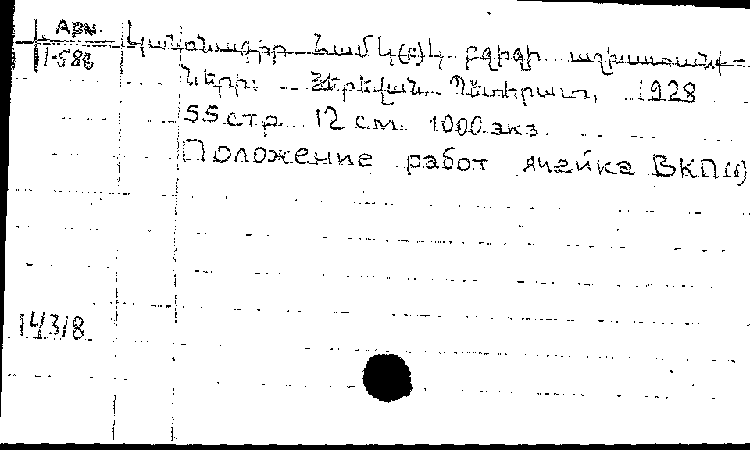 Арм.
1-588
Կանոնադիր Համկ(բ)կ բջիջի աշխատանք-
ների: Յերեվան, Պետհրատ, 1928
55 стр 12 см. 1000 экз.
Положение работ ячейка ВКП(б)
14318